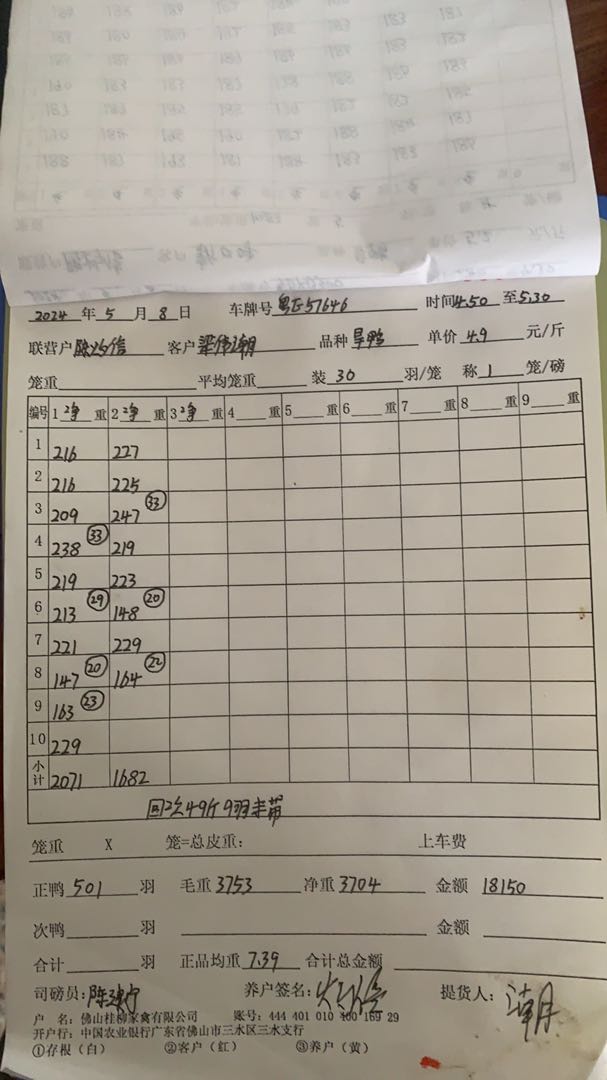 2024 年 5 月 8 日 车牌号 粤E57646 时间 4.50 至 5.30
联营户 客户 梁伟潮 品种 旱鸭 单价 4.9 元/斤
笼重 平均笼重 装 30 羽/笼 称 1 笼/磅
编号 1 净 重 2 净 重 3 净 重 4 重 5 重 6 重 7 重 8 重 9 重
1 216 227
2 216 225
3 209 247 33
4 238 33 219
5 219 223
6 213 29 148 20
7 221 229
8 147 20 164 22
9 163 23
10 229
小计 2071 1682
49斤 9羽
笼重 X 笼=总皮重: 上车费
正鸭 501 羽 毛重 3753 净重 3704 金额 18150
次鸭 羽 金额
合计 羽 正品均重 7.39 合计总金额
司磅员: 养户签名: 提货人: 潮
户 名: 佛山桂柳家禽有限公司 账号: 444 401 010 400 169 29
开户行: 中国农业银行广东省佛山市三水区三水支行
①存根（白） ②客户（红） ③养户（黄）